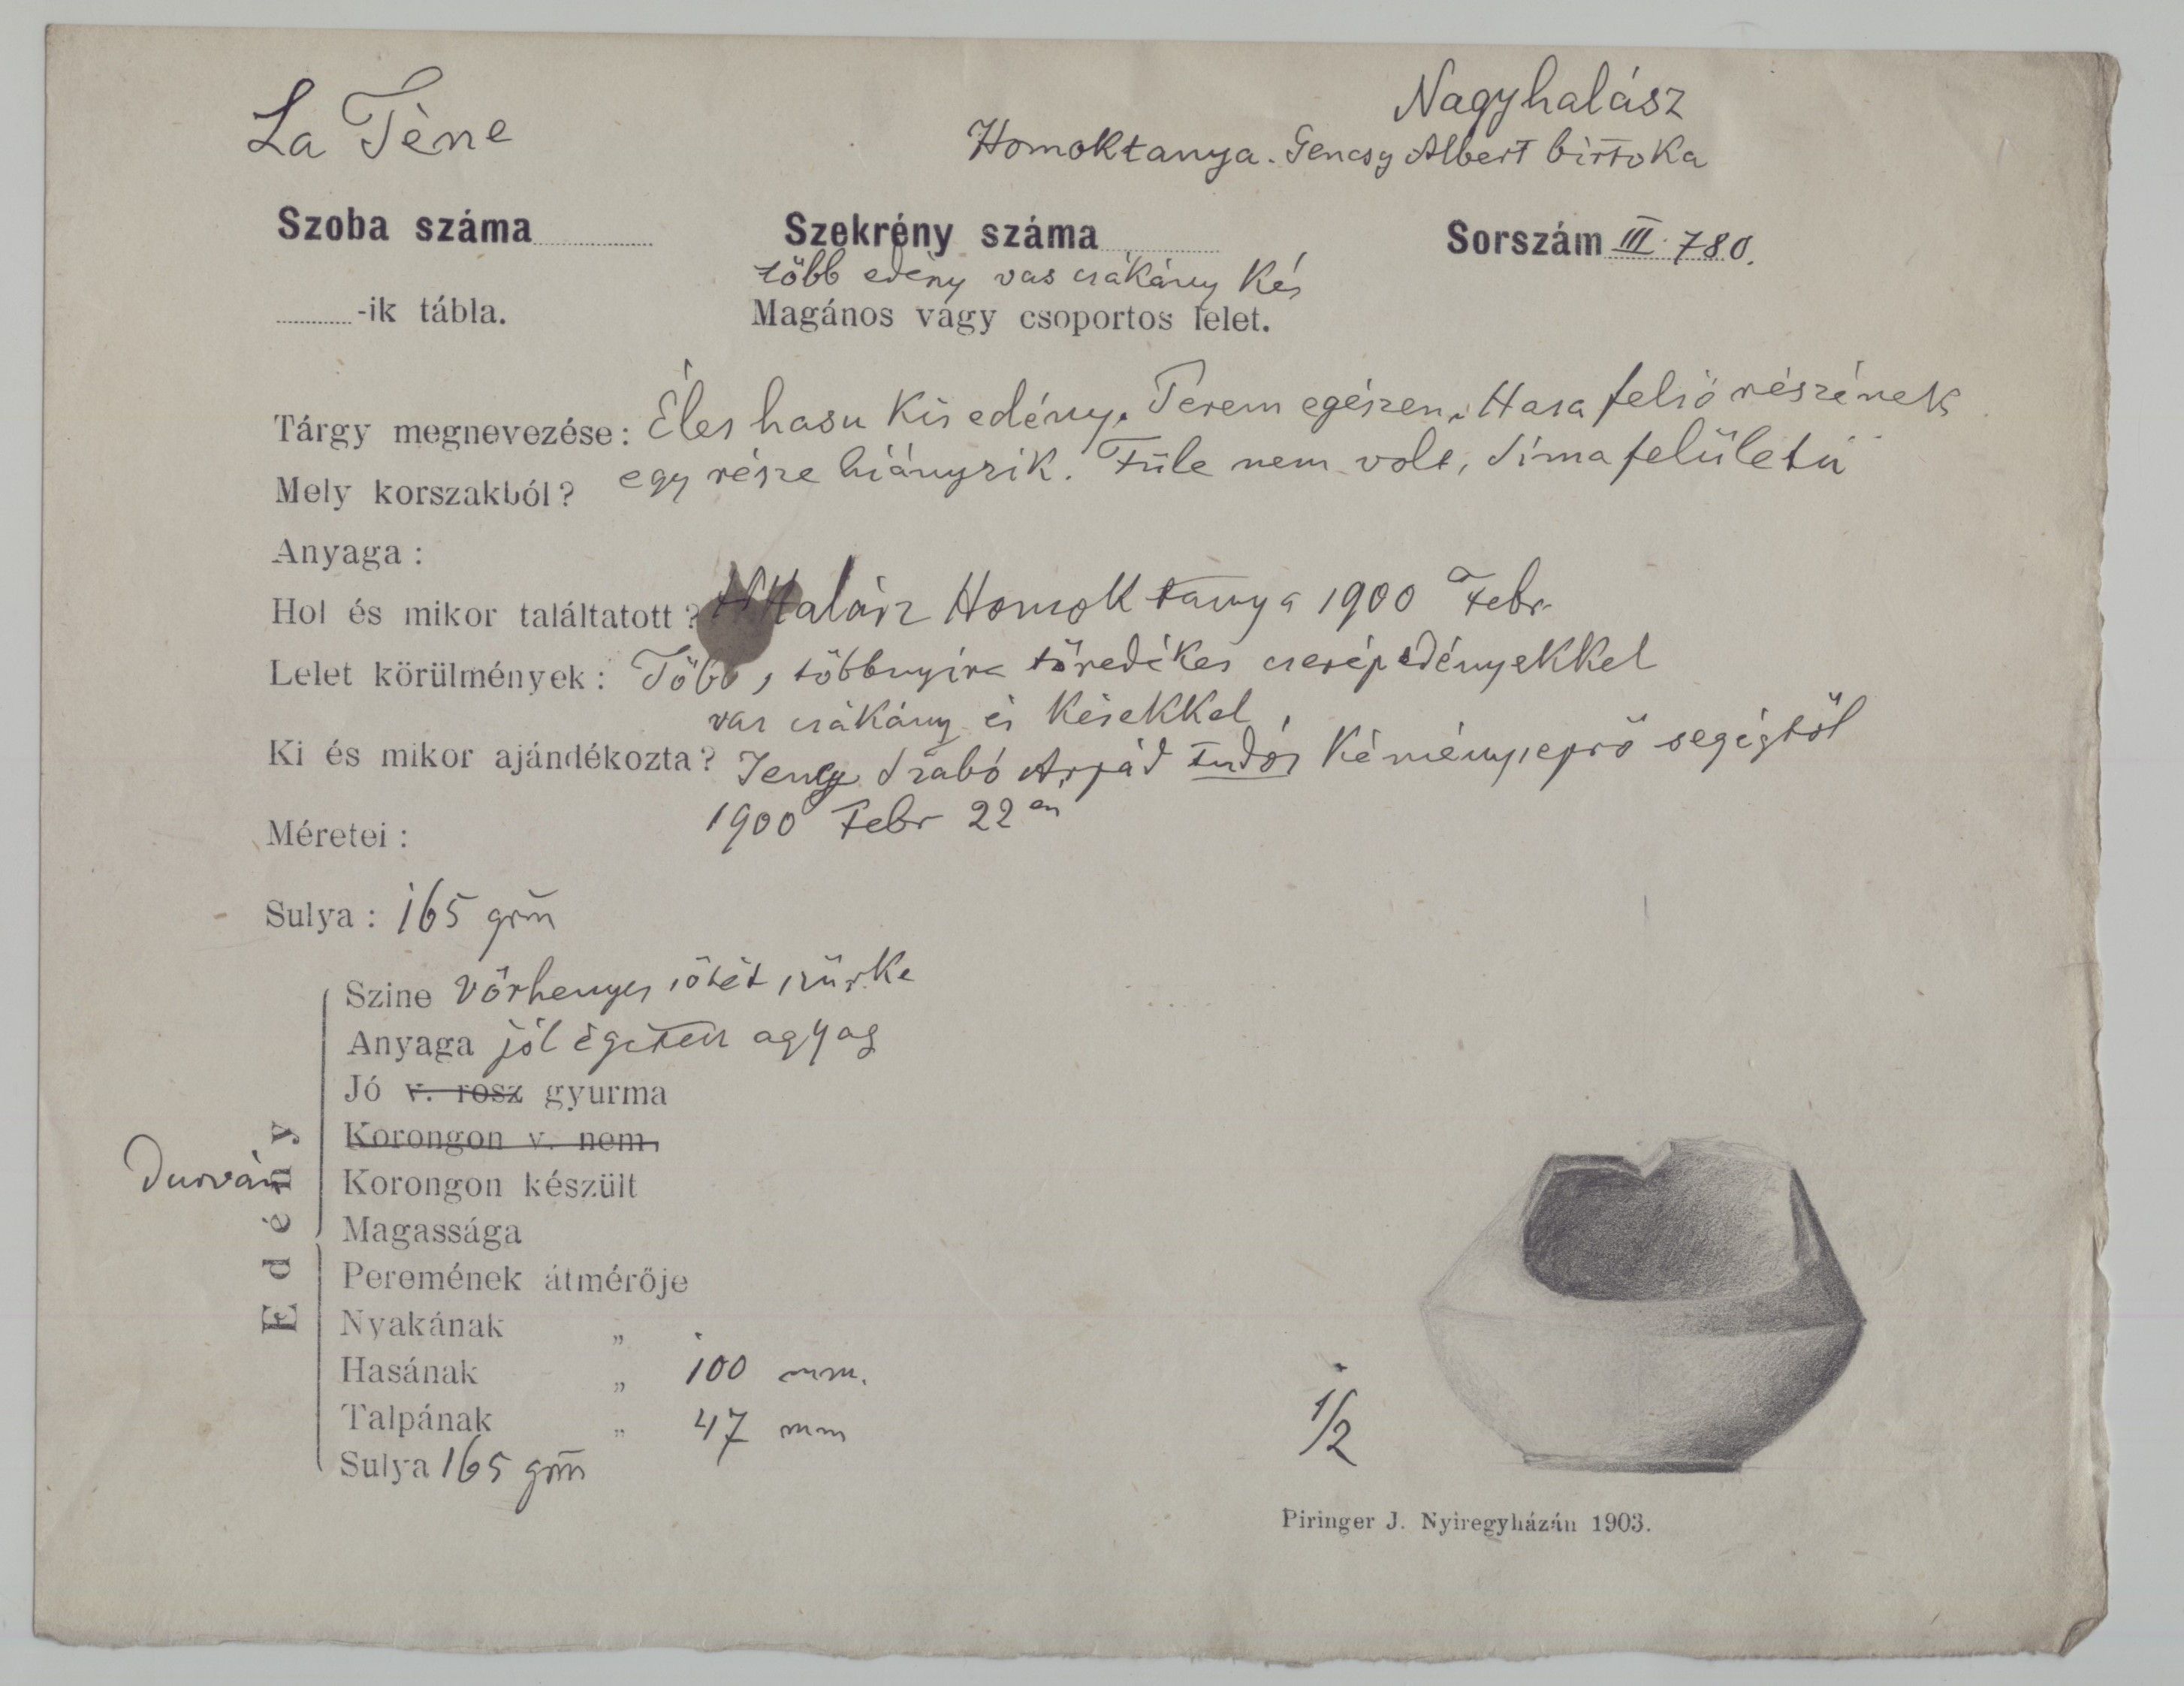 La Tène
Nagyhalász
Homoktanya. Gencsy Albert birtoka
Szoba száma
Szekrény száma
Sorszám III. 780.
több edény vas csákány kés
-ik tábla.
Magános vagy csoportos lelet.
Tárgy megnevezése: Éles hasu kis edény. Perem egészen, Hasa felső részének
Mely korszakból? egy része hiányzik. Füle nem volt, Síma felületű
Anyaga:
Hol és mikor találtatott? N.Halász Homok tanya 1900 Febr
Lelet körülmények: Több, többnyire töredékes cserépedényekkel
vas csákány és késekkel,
Ki és mikor ajándékozta? Jeney Szabó Árpád tudós kéményseprő segégtől
1900 Febr 22 en
Méretei:
Sulya: 165 grm
Szine vörhenyes sötét szürke
Anyaga jól égetett agyag
Jó v. rosz gyurma
Korongon v. nem.
Durván
Edény
Korongon készült
Magassága
Peremének átmérője
Nyakának „
Hasának „ 100 mm.
Talpának „ 47 mm
Sulya 165 grm
1/2
Piringer J. Nyiregyházán 1903.